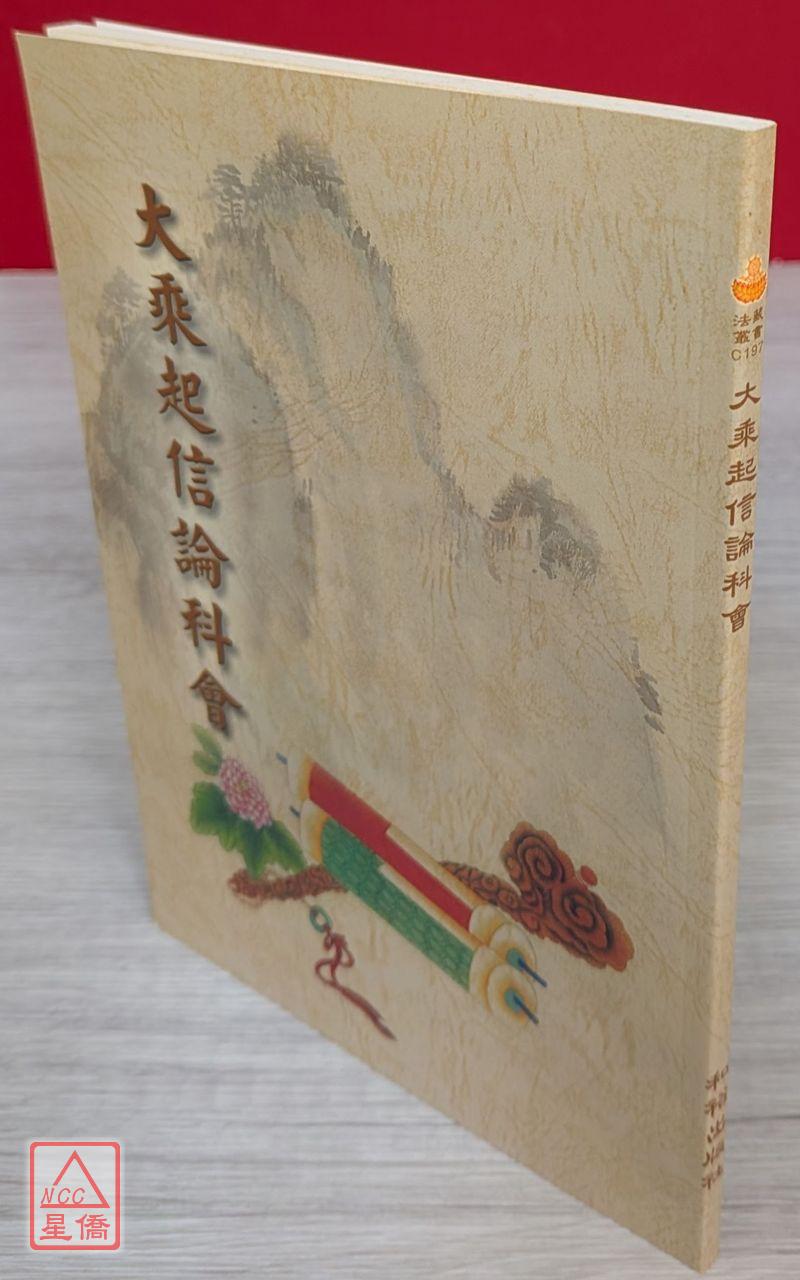 大乘起信論科會
法藏
叢書
C197
大乘起信論科會
和裕出版社
NCC
星僑